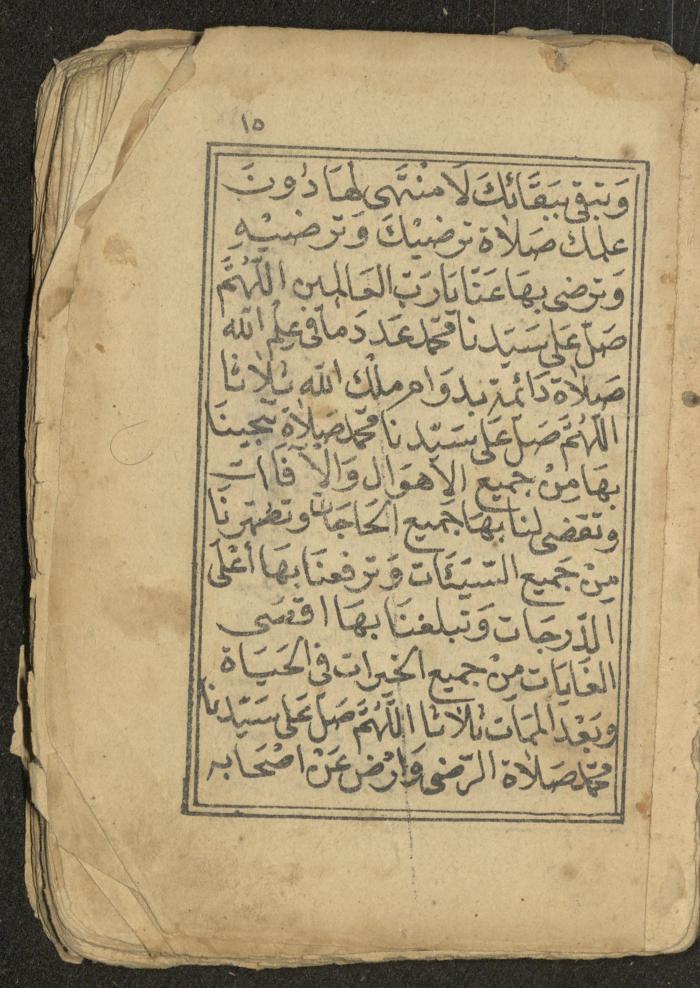 ١٥
وَتبقى بِبَقَائكَ لَا مُنْتَهى لهَا دُونَ
علمك صَلَاة ترضيْكَ وَترضيْهِ
وَترضى بهَا عَنّا يَا رَبّ العَالمين اللّهُمَّ
صَلّ عَلى سَيّدنا محمّد عَدَد مَا فى عِلم الله
صَلَاة دَائمة بدوَام ملْك الله ثَلَاثا
اللّهُمَّ صَلّ عَلى سَيّدنا محمّد صَلَاة تنْجينَا
بهَا مِنْ جَميع الاهوَال وَالآفات
وتقضى لنا بهَا جَميع الحَاجَات وتطهّرنَا
مِنْ جَميع السّيّئات وَترفعنَا بهَا أعْلَى
الدّرجَات وَتبلغنَا بهَا اقصَى
الغَايَات مِنْ جَميع الخيرات فى الحَيَاة
وبَعْد الممَات ثلاثا اللّهُمَّ صَلّ عَلى سَيّدنا
محمّد صَلَاة الرّضى وَارْض عَنْ اصْحَابه